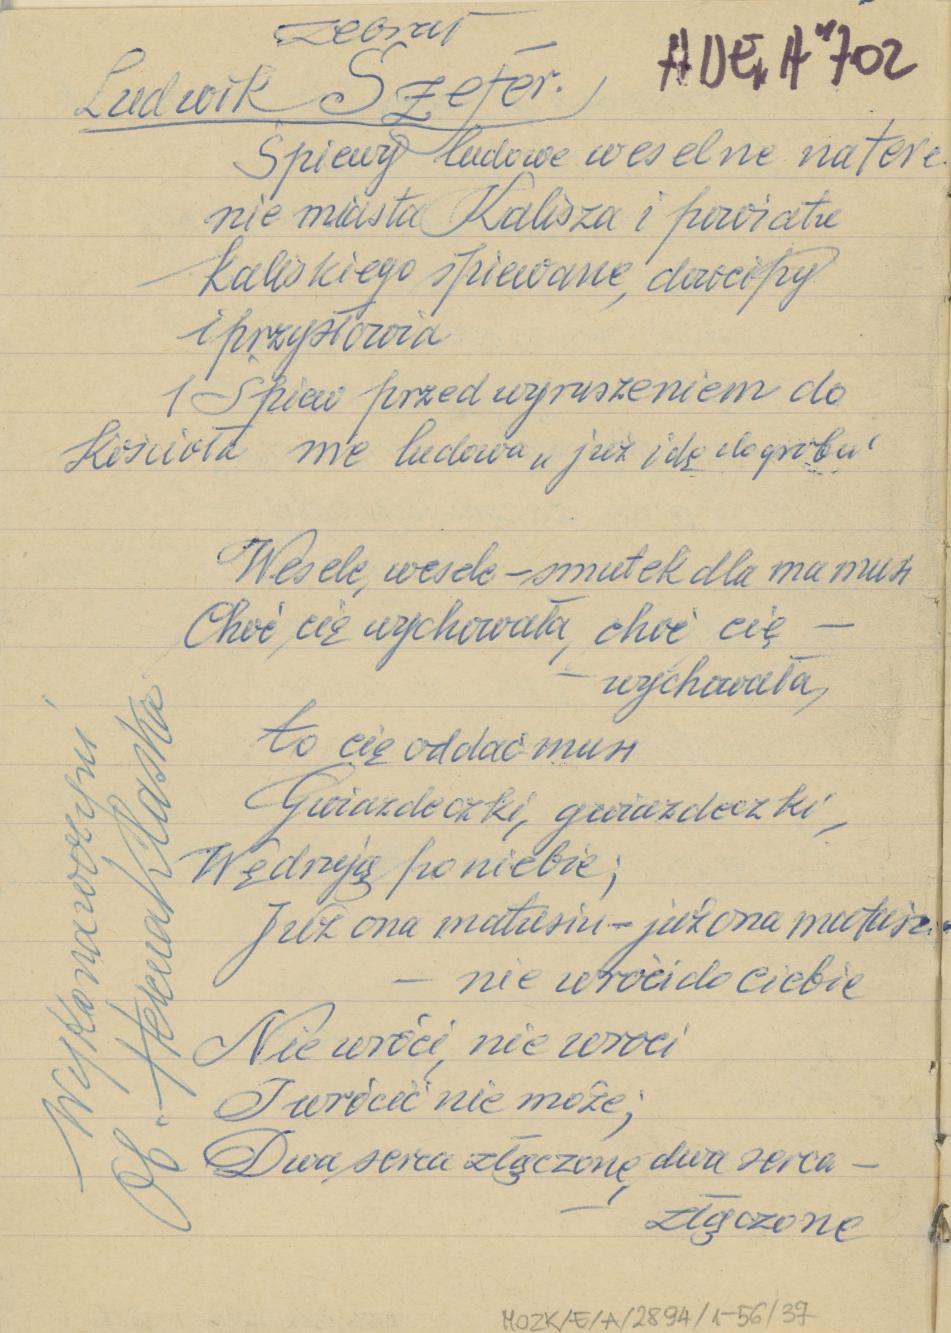 zebrał
Ludwik Szefer.
Śpiewy ludowe weselne na tere
nie miasta Kalisza i powiatu
kaliskiego śpiewane, dowcipy
i przysłowia
1 Śpiew przed wyruszeniem do
Kościoła me ludowa „już idę do grobu"
Wesele, wesele – smutek dla mamusi
Choć cię wychowała, choć cię –
– wychowała,
to cię oddać musi
Gwiazdeczki, gwiazdeczki,
Wędrują po niebie;
Już ona matusiu – już ona matusiu
– nie wróci do ciebie
Nie wróci, nie wroci
I wrócić nie może;
Dwa serca złączone, dwa serca –
– złączone
Wykonawczyni
Ob.
MOZK/E/A/2894/1-56/37